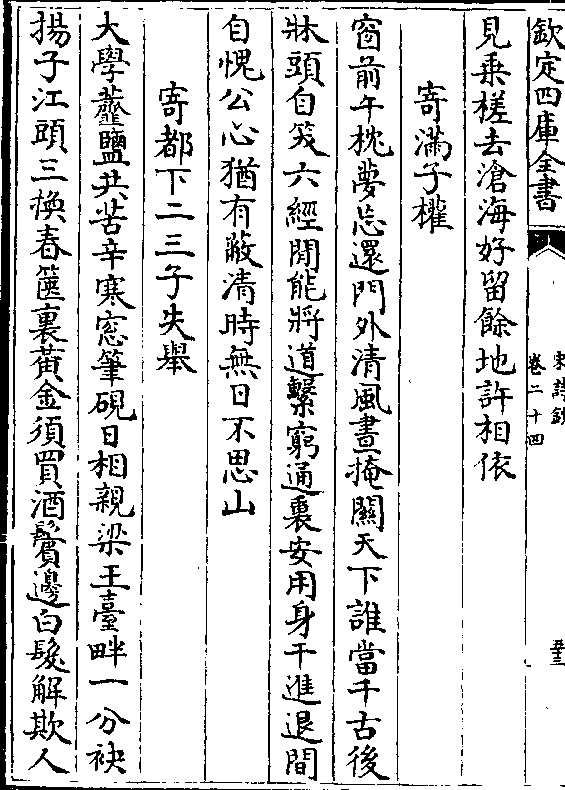 欽定四庫全書
宋詩鈔
卷二十四
見乗槎去滄海好留餘地許相依
寄滿子權
窗前午枕夢忘還門外清風晝掩關天下誰當千古後
牀頭自笈六經閒能將道繫窮通裏安用身干進退間
自愧公心猶有蔽清時無日不思山
寄都下二三子失舉
大學虀鹽共苦辛寒窓筆硯日相親梁王臺畔一分袂
揚子江頭三換春篋裏黃金須買酒鬢邊白髮解欺人